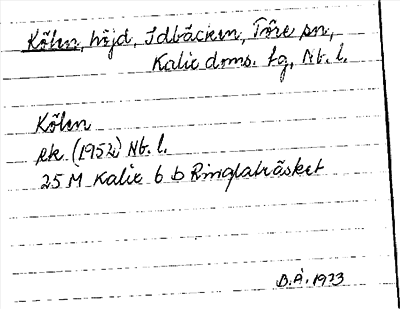 Kölen, höjd, Idbäcken, Töre sn,
Kalix doms. fg, Nb. l.
Kölen
ek. (1952) Nb. l.
25 M Kalix 6 b Ringlaträsket
D.Å. 1933